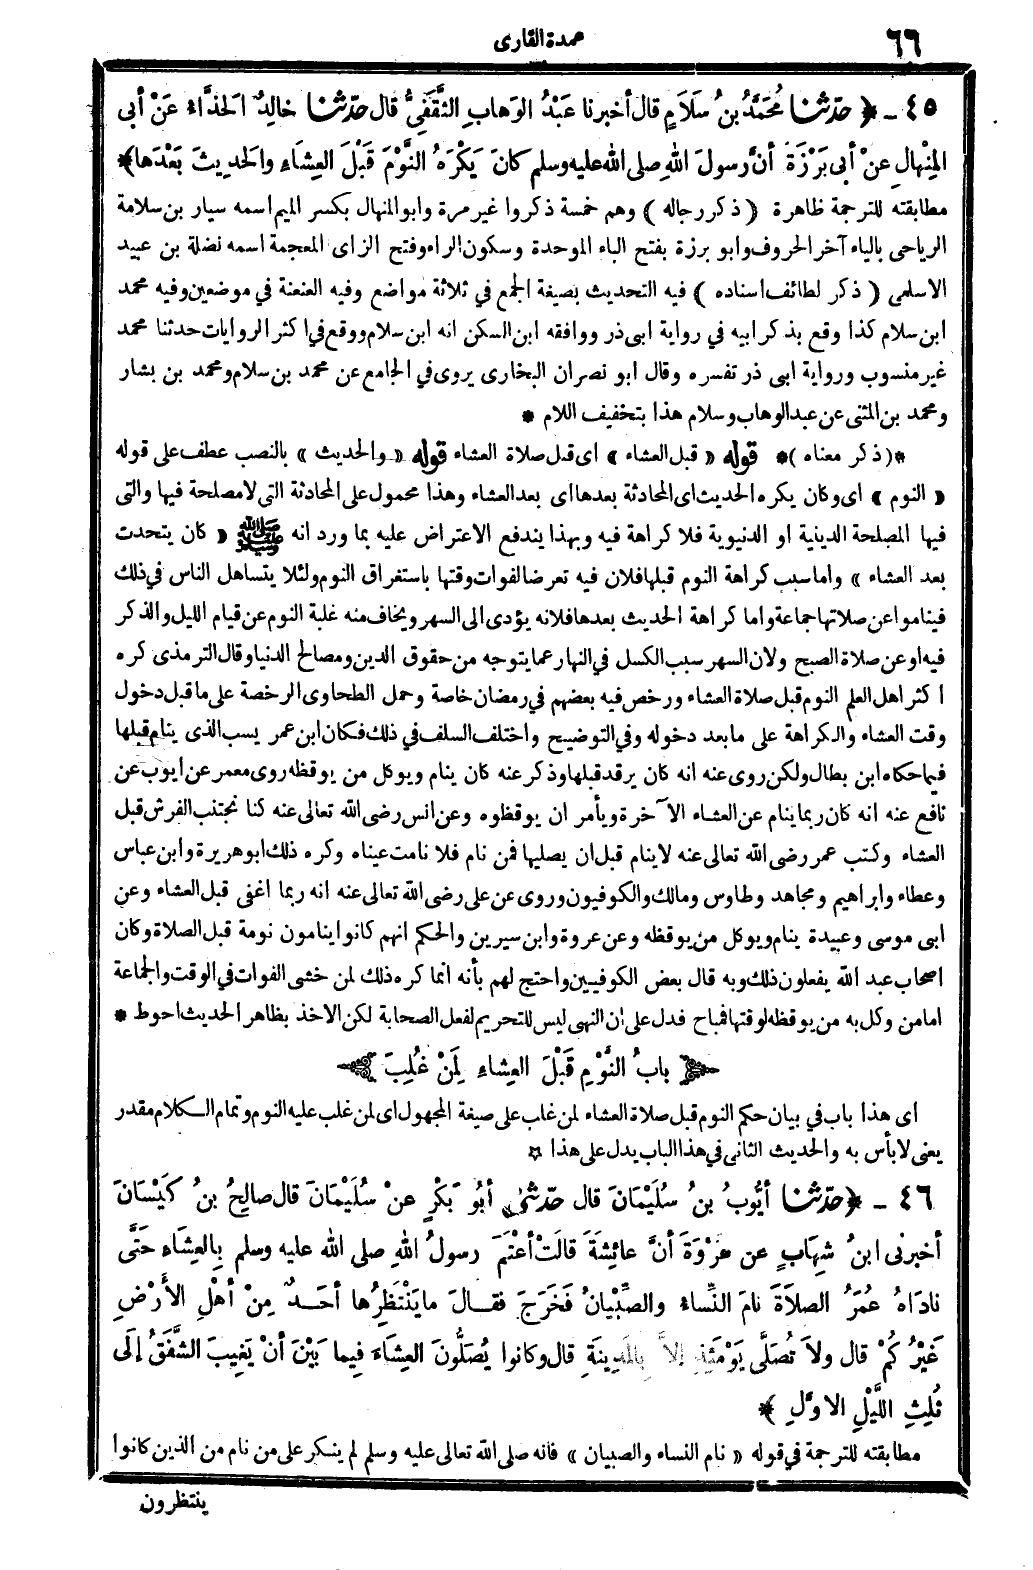 ٦٦
عمدة القارى
٤٥ - ﴿ حدّثنا مُحَمَّدُ بنُ سَلَامٍ قال أخبرنا عَبْدُ الوَهابِ الثَّقَفِيُّ قال حدّثنا خالِدٌ الحَذَّاءُ عَنْ أبى
المِنْهالِ عنْ أبى بَرْزَةَ أنَّ رسولَ اللهِ صلى الله عليه وسلم كانَ يَكْرَهُ النَّوْمَ قَبْلَ العِشَاءِ والحَدِيثَ بَعْدَها﴾
مطابقته للترجمة ظاهرة ( ذكر رجاله ) وهم خمسة ذكروا غير مرة وابو المنهال بكسر الميم اسمه سيار بن سلامة
الرياحى بالياء آخر الحروف وابو برزة بفتح الباء الموحدة وسكون الراء وفتح الزاى المعجمة اسمه نضلة بن عبيد
الاسلمى ( ذكر لطائف اسناده ) فيه التحديث بصيغة الجمع في ثلاثة مواضع وفيه العنعنة في موضعين وفيه محمد
ابن سلام كذا وقع بذكر ابيه في رواية ابى ذر ووافقه ابن السكن انه ابن سلام ووقع في اكثر الروايات حدثنا محمد
غير منسوب ورواية ابى ذر تفسره وقال ابو نصر ان البخارى يروى في الجامع عن محمد بن سلام ومحمد بن بشار
ومحمد بن المثنى عن عبد الوهاب وسلام هذا بتخفيف اللام *
*( ذكر معناه )* قوله « قبل العشاء » اى قبل صلاة العشاء قوله « والحديث » بالنصب عطف على قوله
« النوم » اى وكان يكره الحديث اى المحادثة بعدها اى بعد العشاء وهذا محمول على المحادثة التى لا مصلحة فيها والتى
فيها المصلحة الدينية او الدنيوية فلا كراهة فيه وبهذا يندفع الاعتراض عليه بما ورد انه ﷺ « كان يتحدث
بعد العشاء » واما سبب كراهة النوم قبلها فلان فيه تعرضا لفوات وقتها باستغراق النوم ولئلا يتساهل الناس في ذلك
فيناموا عن صلاتها جماعة واما كراهة الحديث بعدها فلانه يؤدى الى السهر ويخاف منه غلبة النوم عن قيام الليل والذكر
فيه او عن صلاة الصبح ولان السهر سبب الكسل في النهار عما يتوجه من حقوق الدين ومصالح الدنيا وقال الترمذى كره
اكثر اهل العلم النوم قبل صلاة العشاء ورخص فيه بعضهم في رمضان خاصة وحمل الطحاوى الرخصة على ما قبل دخول
وقت العشاء والكراهة على ما بعد دخوله وفي التوضيح واختلف السلف في ذلك فكان ابن عمر يسب الذى ينام قبلها
فيما حكاه ابن بطال ولكن روى عنه انه كان يرقد قبلها وذكر عنه كان ينام ويوكل من يوقظه روى معمر عن ايوب عن
نافع عنه انه كان ربما ينام عن العشاء الآخرة ويأمر ان يوقظوه وعن انس رضى الله تعالى عنه كنا نجتنب الفرش قبل
العشاء وكتب عمر رضى الله تعالى عنه لا ينام قبل ان يصليها فمن نام فلا نامت عيناه وكره ذلك ابو هريرة وابن عباس
وعطاء وابراهيم ومجاهد وطاوس ومالك والكوفيون وروى عن على رضى الله تعالى عنه انه ربما اغفى قبل العشاء وعن
ابى موسى وعبيدة ينام ويوكل من يوقظه وعن عروة وابن سيرين والحكم انهم كانوا ينامون نومة قبل الصلاة وكان
اصحاب عبد الله يفعلون ذلك وبه قال بعض الكوفيين واحتج لهم بأنه انما كره ذلك لمن خشى الفوات في الوقت والجماعة
اما من وكل به من يوقظه لوقتها فمباح فدل على ان النهى ليس للتحريم لفعل الصحابة لكن الاخذ بظاهر الحديث احوط *
﴿ بابُ النَّوْمِ قَبْلَ العِشاءِ لِمَنْ غُلِبَ ﴾
اى هذا باب في بيان حكم النوم قبل صلاة العشاء لمن غلب على صيغة المجهول اى لمن غلب عليه النوم وتمام الكلام مقدر
يعنى لا بأس به والحديث الثانى في هذا الباب يدل على هذا *
٤٦ - ﴿ حدّثنا أيُّوبُ بنُ سُلَيْمَانَ قال حدّثنى أبُو بَكْرٍ عنْ سُلَيْمَانَ قال صالِحُ بنُ كَيْسَانَ
أخبرنى ابنُ شِهَابٍ عن عُرْوَةَ أنَّ عائِشَةَ قالَتْ أعْتَمَ رسولُ اللهِ صلى الله عليه وسلم بالعِشَاءِ حَتَّى
نادَاهُ عُمَرُ الصلاَةَ نامَ النِّساءُ والصِّبْيانُ فَخَرَجَ فقالَ ما يَنْتَظِرُها أحَدٌ مِنْ أهْلِ الأَرْضِ
غَيْرُكُمْ قال ولاَ تُصَلَّى يَوْمَئِذٍ إلاَّ بِالمَدِينَةِ قال وكانوا يُصَلُّونَ العِشَاءَ فِيما بَيْنَ أنْ يَغِيبَ الشَّفَقُ إلَى
ثُلِثِ اللَّيْلِ الاوَّلِ ﴾
مطابقته للترجمة في قوله « نام النساء والصبيان » فانه صلى الله تعالى عليه وسلم لم ينكر على من نام من الذين كانوا
ينتظرون